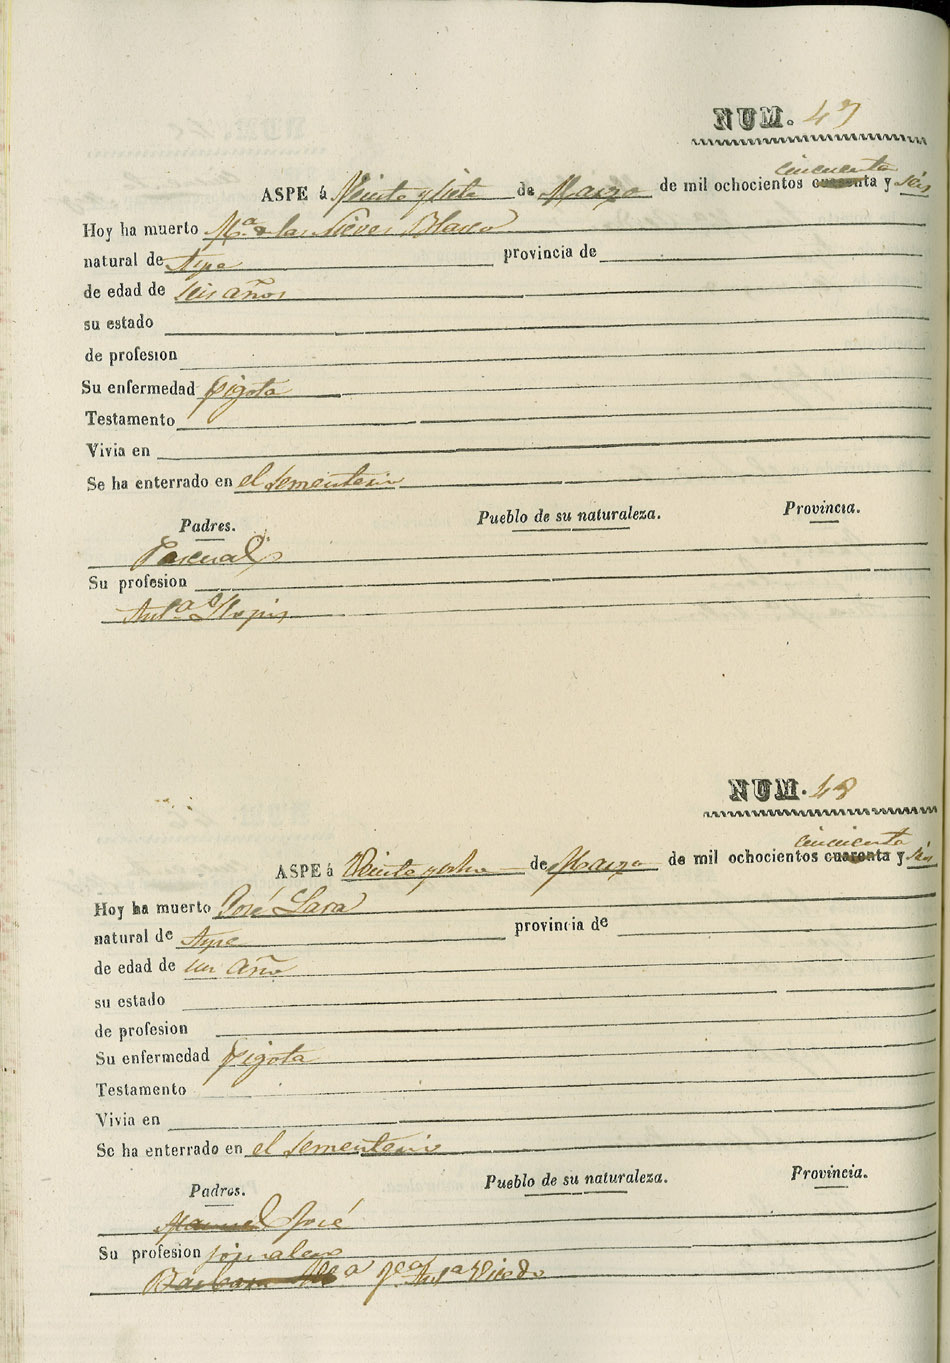 NUM. 47
cincuenta
ASPE á Veinte y siete de Marzo de mil ochocientos cuarenta y seis
Hoy ha muerto M.ª de las Nieves Blasco
natural de Aspe provincia de
de edad de seis años
su estado
de profesion
Su enfermedad pigota
Testamento
Vivia en
Se ha enterrado en el sementerio
Padres. Pueblo de su naturaleza. Provincia.
Pascual
Su profesion
Ant.ª Llopis
NUM. 48
cincuenta
ASPE á Veinte y ocho de Marzo de mil ochocientos cuarenta y seis
Hoy ha muerto José Lara
natural de Aspe provincia de
de edad de un año
su estado
de profesion
Su enfermedad pigota
Testamento
Vivia en
Se ha enterrado en el sementerio
Padres. Pueblo de su naturaleza. Provincia.
Manuel José
Su profesion jornalero
Barbara Ant.ª